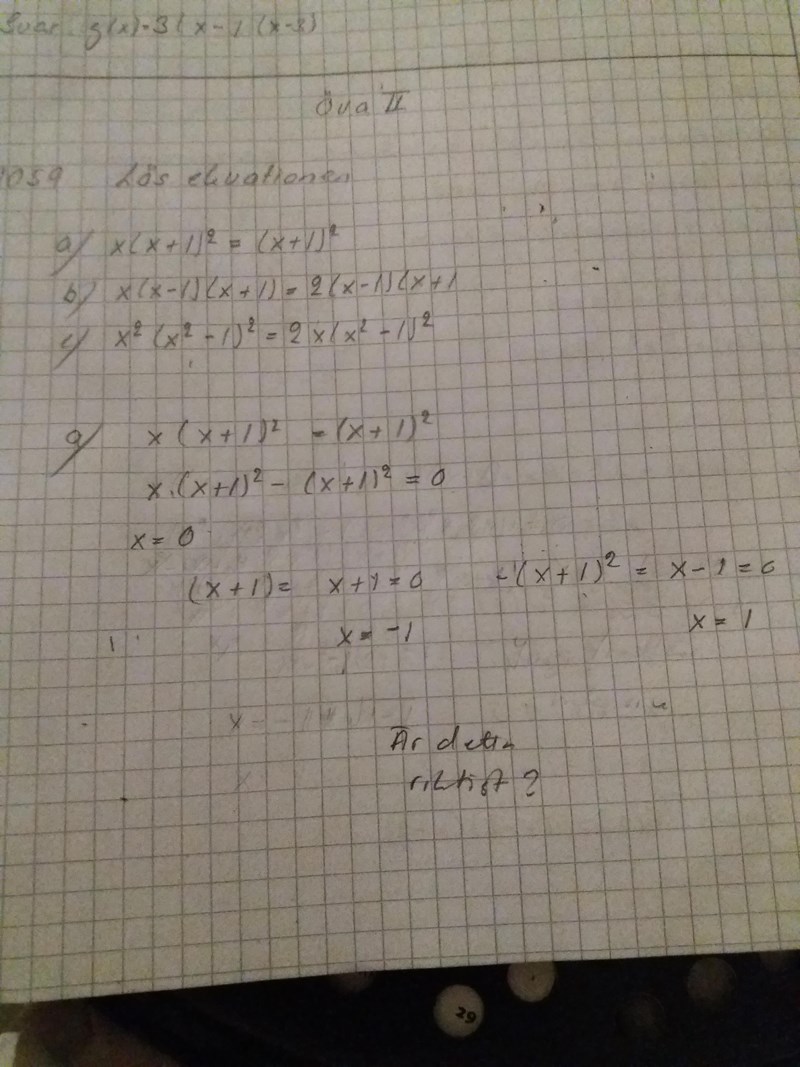 Svar g(x)-3(x-1)(x-3)
Öva II
1059 Lös ekvationen
a) x(x+1)² = (x+1)²
b) x(x-1)(x+1) = 2(x-1)(x+1
c) x²(x²-1)² = 2x(x²-1)²
a) x·(x+1)² = (x+1)²
x·(x+1)² - (x+1)² = 0
x = 0
(x+1)= x+1=0 -(x+1)² = x-1=0
x = -1 x = 1
Är detta
riktigt?
29